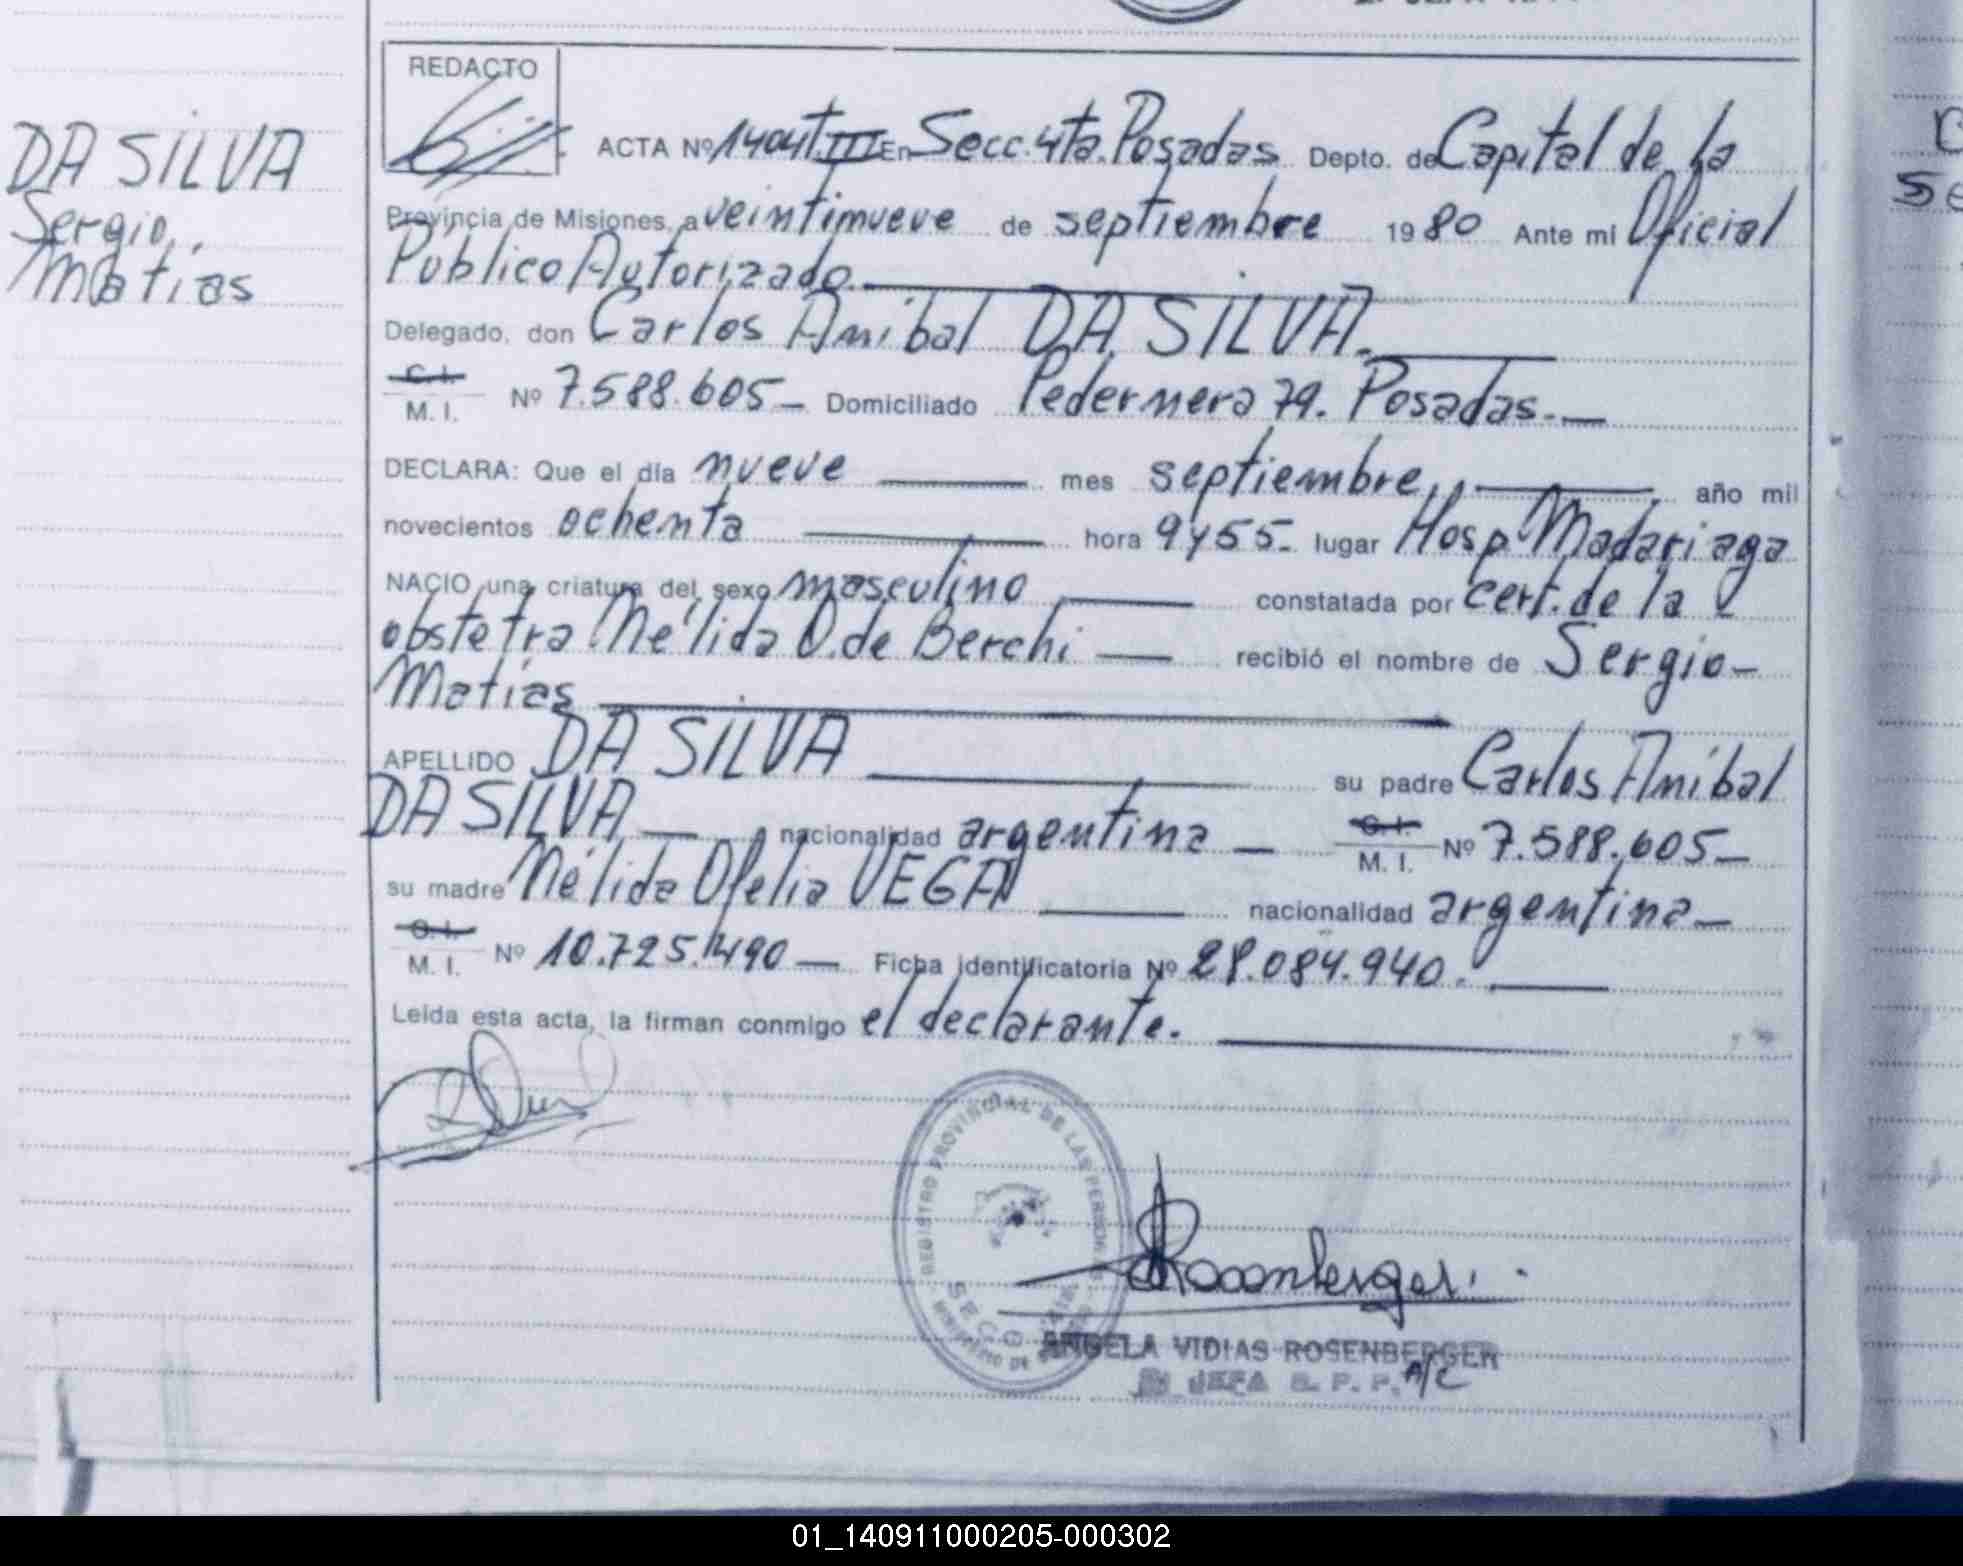 DA SILVA
Sergio
Matías
REDACTO
ACTA Nº 1404 T. III En Secc. 4ta. Posadas Depto. de Capital de la
Provincia de Misiones, a veintinueve de septiembre 1980 Ante mi Oficial
Público Autorizado.
Delegado, don Carlos Aníbal DA SILVA.
C. I.
M. I. Nº 7.588.605 Domiciliado Pedernera 79. Posadas.
DECLARA: Que el día nueve mes septiembre, año mil
novecientos ochenta hora 9 y 55 lugar Hosp. Madariaga
NACIO una criatura del sexo masculino constatada por cert. de la
obstetra Mélida O. de Berchi recibió el nombre de Sergio
Matías
APELLIDO DA SILVA su padre Carlos Aníbal
DA SILVA nacionalidad argentina C. I. M. I. Nº 7.588.605
su madre Mélida Ofelia VEGA nacionalidad argentina
C. I.
M. I. Nº 10.725.490 Ficha identificatoria Nº 28.084.940.
Leída esta acta, la firman conmigo el declarante.
REGISTRO PROVINCIAL DE LAS PERSONAS
Rosenberger
ANGELA VIDIAS ROSENBERGER
JEFA R. P. P. A/C
01_140911000205-000302